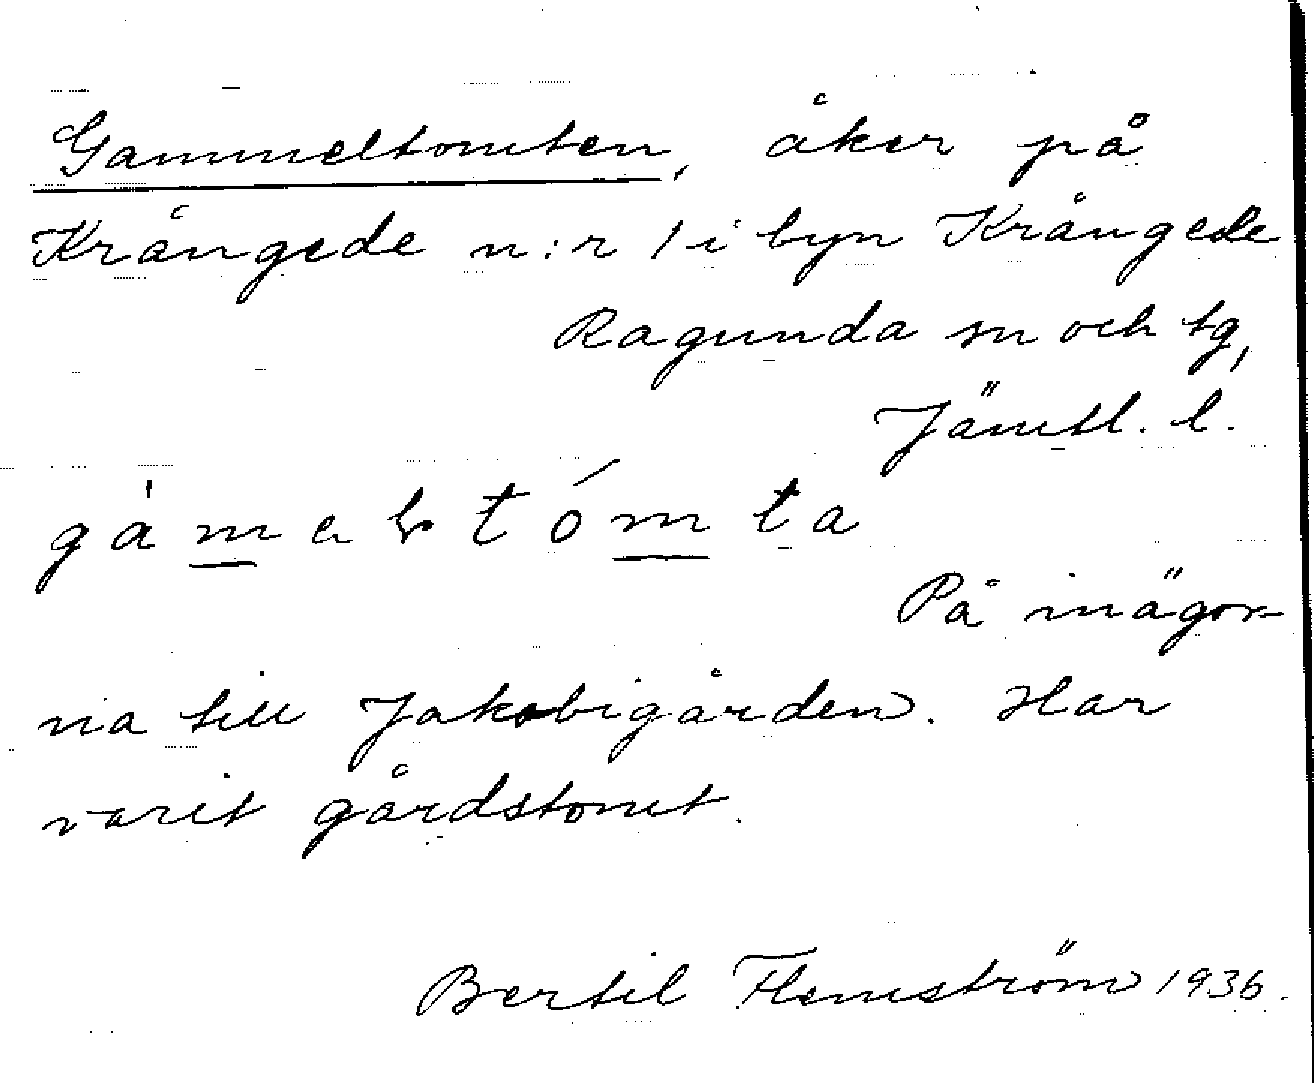 Gammeltomten, åker på
Krångede n:r 1 i byn Krångede
Ragunda sn och tg,
Jämtl. l.
På inägor-
na till Jakobigården. Har
varit gårdstomt.
Bertil Flemström 1936.